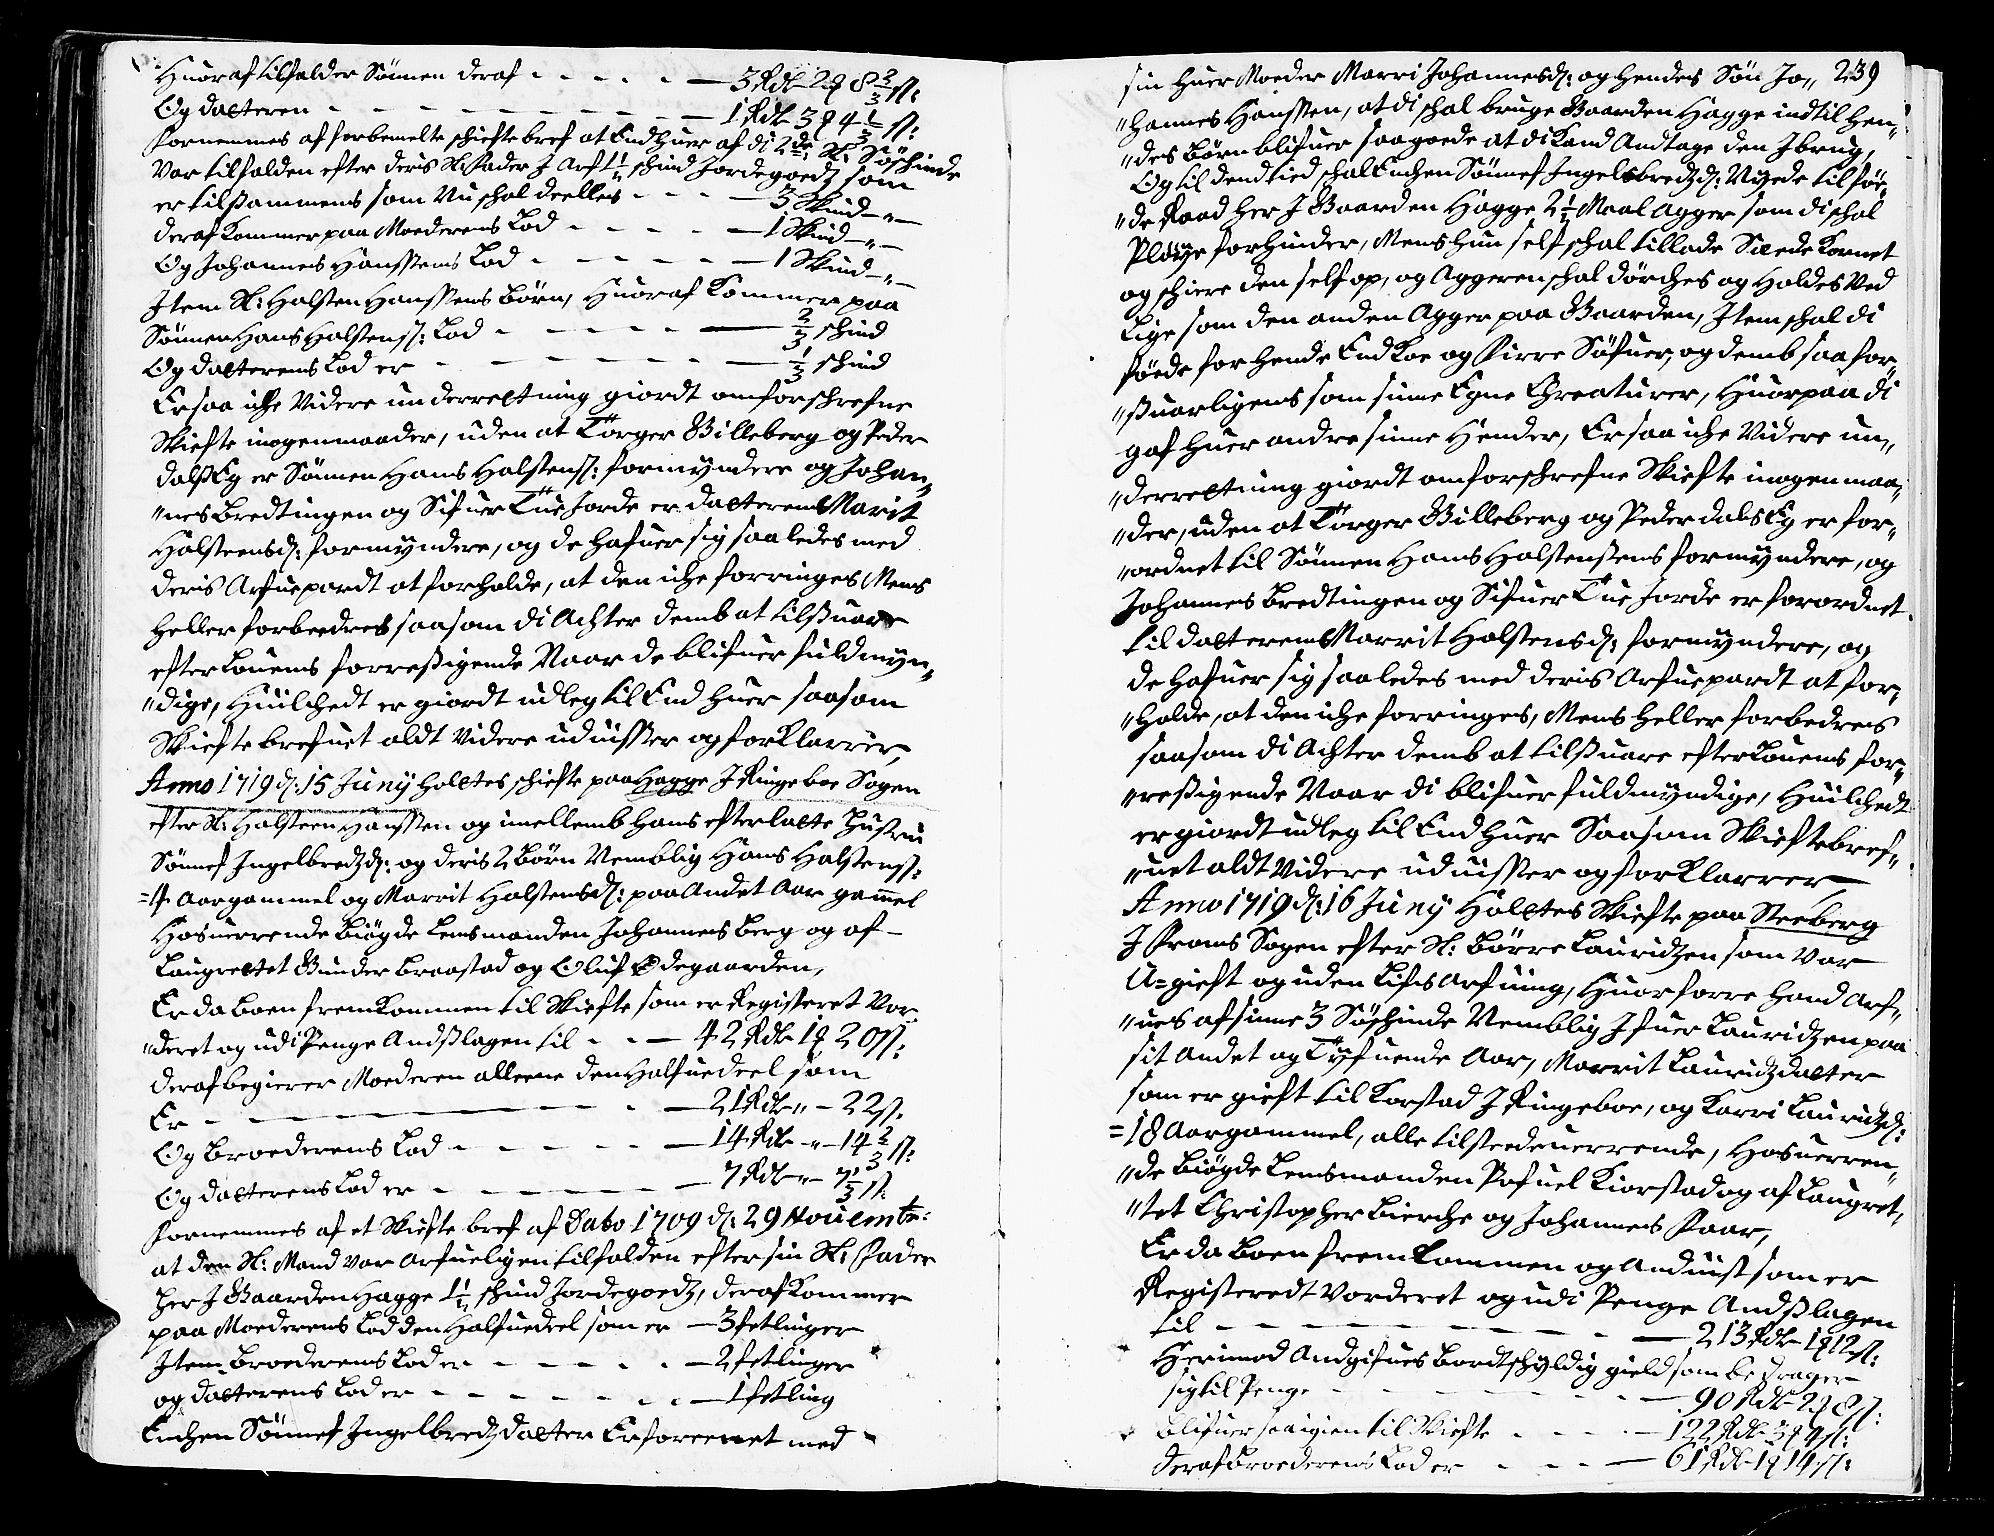 Huoraf tilfalder Sønnen deraf - - - - - 3 Rdr 2 q 8 2/3 s:
Og datteren - - - - - - - - 1 Rdr 3 q 4 1/3 s:
fornemmes af forbemelte schiefte bref at End huer af di 2de Sl: Søschinde
Var tilfalden efter deris Sl: Fader J Arf 1 1/2 schind Jordegoedz som
er tilsammens som Nu schal deelles - - - 3 Skind - " -
deraf Kommer paa Moederens Lod - - - - 1 Skind - " -
Og Johannes Hanssens Lod - - - - 1 Skind - " -
Item Sl: Halsten Hanssens børn, Huoraf Kommer paa
Sønnen Hans Halstens: Lod - - - - 2/3 schind
Og datterens Lod er - - - - - - 1/3 schind
Er saa iche Videre underrettning giordt om forschrefne
Skiefte i nogen maader, uden at Törger Billeberg og Peder
dalsEg er Sønnen Hans Halstens: formyndere og Johan-
"nes Bredtingen og Sifuer Tüe Jorde er datteren Marit
Halsteensd: formyndere, og de hafuer sig saaledes med
deris Arfuepardt at forholde, at den iche forringes Mens
heller forbeedres saasom di Achter demb at tilsuare
efter Louens forresigende Naar de blifuer fuldmyn-
"dige, Huilchedt er giordt udleg til End huer saasom
Skiefte brefuet aldt Videre uduisser og forklarrer,
Anno 1719 d: 15 Juny holtes schiefte paa Hagge J Ringeboe Sogen
efter Sl: Halsteen Hanssen og imellemb hans efterlatte Hustru
Sønnef Ingelbredzd: og deris 2 børn Nemblig Hans Halstenss:
=4 Aar gammel og Marrit Halstensd: paa Andet Aar gammel
Hosuerrende bøygde Lensmanden Johannes Berg og af -
Laugrettet Gunder Braastad og Oluf Ødegaarden,
Er da boen fremkommen til Skiefte som er Registeret Vor-
"deret og udi Penge Andslagen til - - - 42 Rdr 1 q 20 s:
deraf begierer Moederen alleene den Halfuedeel som
Er - - - - - - - 21 Rdr " - 22 s:
Og broederens Lod - - - - - 14 Rdr - " - 14 2/3 s:
Og datterens Lod er - - - - - 7 Rdr " - 7 1/3 s:
fornemmes af et Skiefte bref af Dato 1709 d: 29 Nouembr:
at den Sl: Mand var Arfueligen tilfalden efter sin Sl: Fader
her J Gaarden Hagge 1 1/2 schind Jordegoedz, deraf Kommer
paa Moederens Lod den Halfuedeel som er - 3 fetlinger
Item broederens Lod er - - - - - 2 fetlinger
og datterens Lod er - - - - - - 1 fetling
Enchen Sønnef Ingelbredzdatter Er foreenet med -
239
sin huer Moeder Marri Johannesd: og hendes Søn Jo-
"hannes Hanssen, at di schal bruge Gaarden Hagge indtil hen-
"des børn blifuer saa goede at di kand Andtage den J brug,
Og til dend tied schal Enchen Sønnef Ingelbredzd: Nyede til för-
"de Raad her J Gaarden Hagge 2 1/2 Maal Agger som di schal
Pløye for hinder, Mens hun self schal tillade Saede Kornet
og schiere den self op, og Aggeren schal dørches og holdes Ved
Lige som den anden Agger paa Gaarden, Item schal di
føede for hende End Koe og firre Søfuer, og demb saa for-
"suarligens som sinne Egne Chreaturer, Huorpaa di
gaf huer andre sinne Hender, Er saa iche Videre un-
"derrettning giordt om forschrefne Skiefte i nogen maa-
"der, uden at Törger Billeberg og Peder dals Eg er for-
"ordnet til Sønnen Hans Halstensens formyndere, og
Johannes Bredtingen og Sifuer Tüe Jorde er forordnet
til datteren Marrit Halstensd: formyndere, og
de hafuer sig saaledes med deris Arfuepardt at for-
"holde, at den iche forringes, Mens heller forbedres
saasom di Achter demb at tilsuare efter Louens for-
"resigende Naar di blifuer fuldmyndige, Huilchedt
er giordt udleg til End huer Saasom Skieftebref-
"uet aldt Videre uduisser og forklarrer,
Anno 1719 d: 16 Juny Höltes Skiefte paa Steeberg
J Froens Sogen efter Sl: Børre Lauridzen som Var
U=gieft og uden Lifs Arfuing, Huorforre hand Arf-
"ues af sinne 3 Søschinde Nemblig Jfuer Lauridzen paa
sit Andet og Tyfuende Aar, Marrit Lauridzdatter
som er gieft til Korstad J Ringeboe, og Karri Lauridzd:
=18 Aar gammel, alle tilsteedeuerrende, Hosuerren-
"de bøygde Lensmanden Pofuel Kiorstad og af Laugret-
"tet Christopher Bierche og Johannes Faar,
Er da boen fremkommen og Anduist som er
Registeredt Vorderet og udi Penge Andslagen
til - - - - - - - - 213 Rdr 1 q 12 s:
Herimod Andgifues bordtschyldig gield som bedrager
sig til Penge - - - - - - 90 Rdr 2 q 8 s:
blifuer saa igien til Skiefte - - - - 122 Rdr 3 q 4 s:
deraf broederens Lod er - - - 61 Rdr 1 q 14 s: